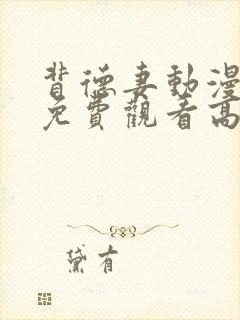 背德妻動漫
免費觀看高
黛有